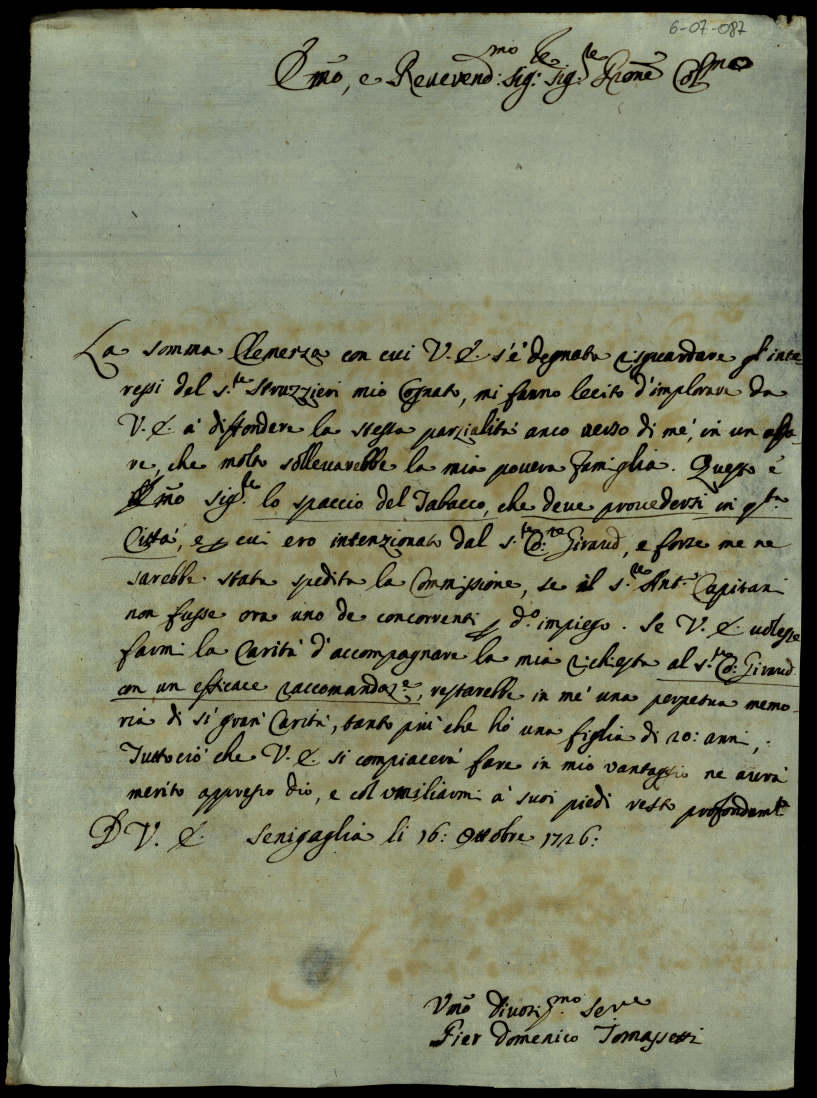 6-07-087
Emõ, e Reverend:mo Sig:re Sig:re Prone Colmo
La somma Clemenza con cui V. E. s'è degnata risguardare gl'inte-
ressi del s.re Struzzieri mio Cognato, mi fanno lecito d'implorare da
V. E. à diffondere la stessa parzialità anco verso di mè, in un affa-
re, che molto sollevarebbe la mia povera famiglia. Questo è
Emõ Sig.re lo spaccio del Tabacco, che deve provedersi in qta
Città, e p cui ero intenzionato dal s.re C:te Giraud, e forze me ne
sarebbe stata spedita la Commissione, se il s.re Ant.o Capitani
non fusse ora uno de concorrenti p d.o impiego. Se V. E. volesse
farmi la Carità d'accompagnare la mia richiesta al s.re C: Giraud
con un efficace raccomandaz.e, restarebbe in mè una perpetua memo-
ria di sì gran Carità, tanto più che hò una figlia di 20: anni,
Tutto ciò che V. E. si compiacerà fare in mio vantaggio ne avrà
merito appresso Dio, e col umiliarmi à suoi piedi resto profondam.te
D V. E. Senigaglia li 16: Ottobre 1726:
Vmõ Divotis.mo Serve
Pier Domenico Tomassetti